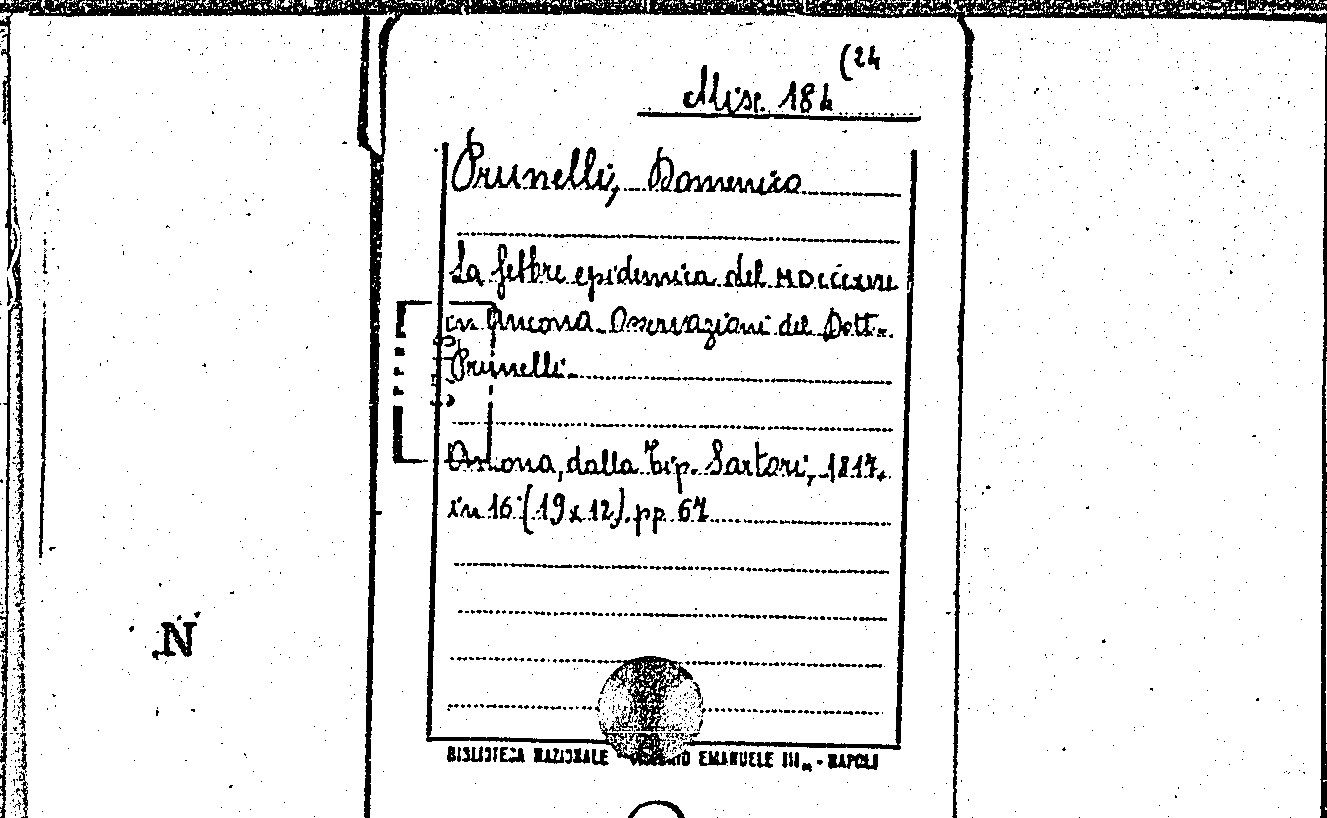 (24
Misc. 184
Prunelli, Domenico
La febbre epidemica del MDCCCXVII
in Ancona. Osservazioni del Dott.
Prunelli.
Ancona, dalla Tip. Sartori, 1817.
in 16 (19x12). pp 67
N
BIBLIOTECA NAZIONALE EMANUELE III - NAPOLI